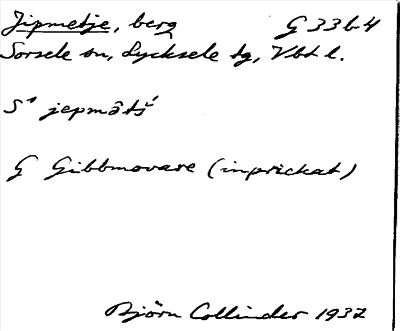 Jipmetje, berg G 33b4
Sorsele sn, Lycksele tg, Vbt l.
S¹ jepmātš́
G Gibbmovare (inprickat)
Björn Collinder 1937